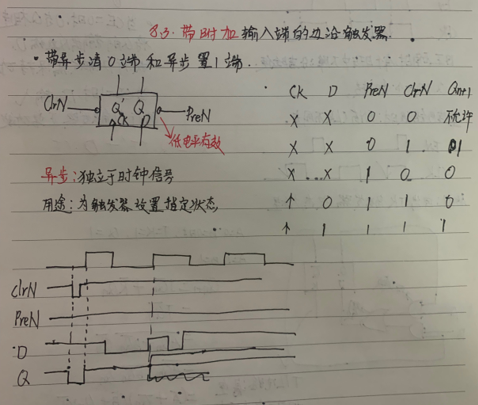 8.3. 带附加输入端的边沿触发器.
· 带异步清0端和异步置1端.
ClrN Q' Q PreN
CK D
低电平有效
CK D PreN ClrN Qn+1
X X 0 0 不允许
X X 0 1 1
X X 1 0 0
↑ 0 1 1 0
↑ 1 1 1 1
异步:独立于时钟信号
用途:为触发器设置指定状态
ClrN
PreN
D
Q